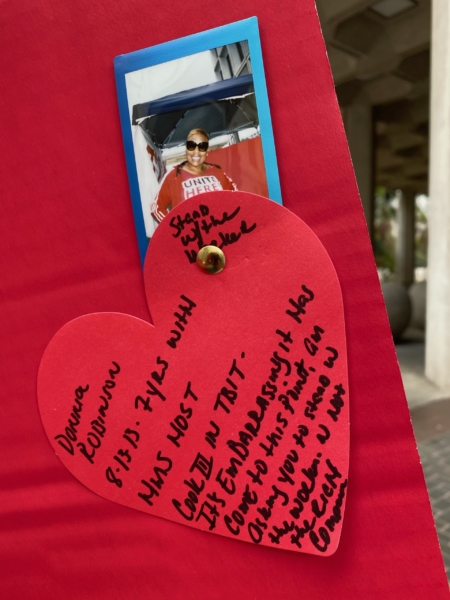 UNITE
HERE
Stand
w/the
Worker
Donna
ROBINSON
8.13.13. 7yrs WITH
HMS HOST
Cook III IN TBIT.
It's EmBARRASSing it HAS
COME to this Point, Am
asking you to stand w
the worker. n not
the RICH
Company